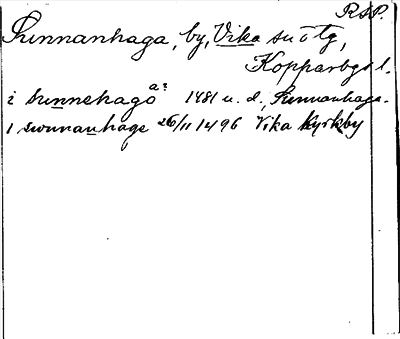 RSP.
Sunnanhaga, by, Vika sn o tg,
Kopparbgs l.
a?
i sunnehago 1481 u. d., Sunnanhaga.
i swnnanhage 26/11 1496 Vika kyrkby